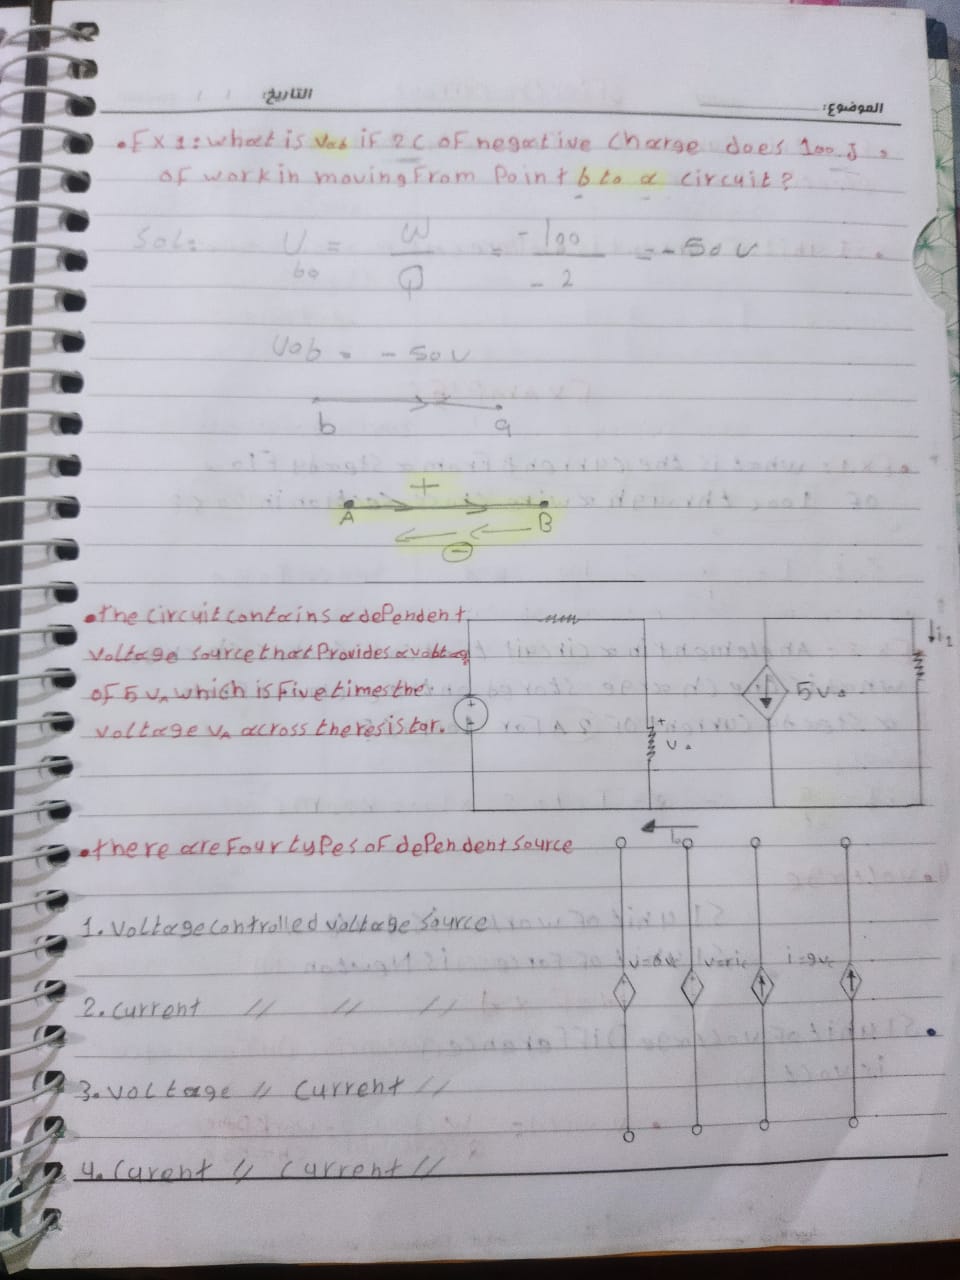 التاريخ:
الموضوع:
• Ex 1: what is Vab if 2C of negative charge does 100 J
of work in moving from Point b to a circuit?
Sol: V ba = W / Q = -100 / -2 = -50 V
Vab = -50 V
b a
+
A B
-
• the circuit contains a dependent
voltage source that Provides a voltage
of 5 VA which is Five times the
voltage VA across the resistor.
+
-
+
V
5V
i1
• there are Four types of dependent source
1. Voltage controlled voltage source
2. Current // // //
3. voltage // Current //
4. Curent // Current //